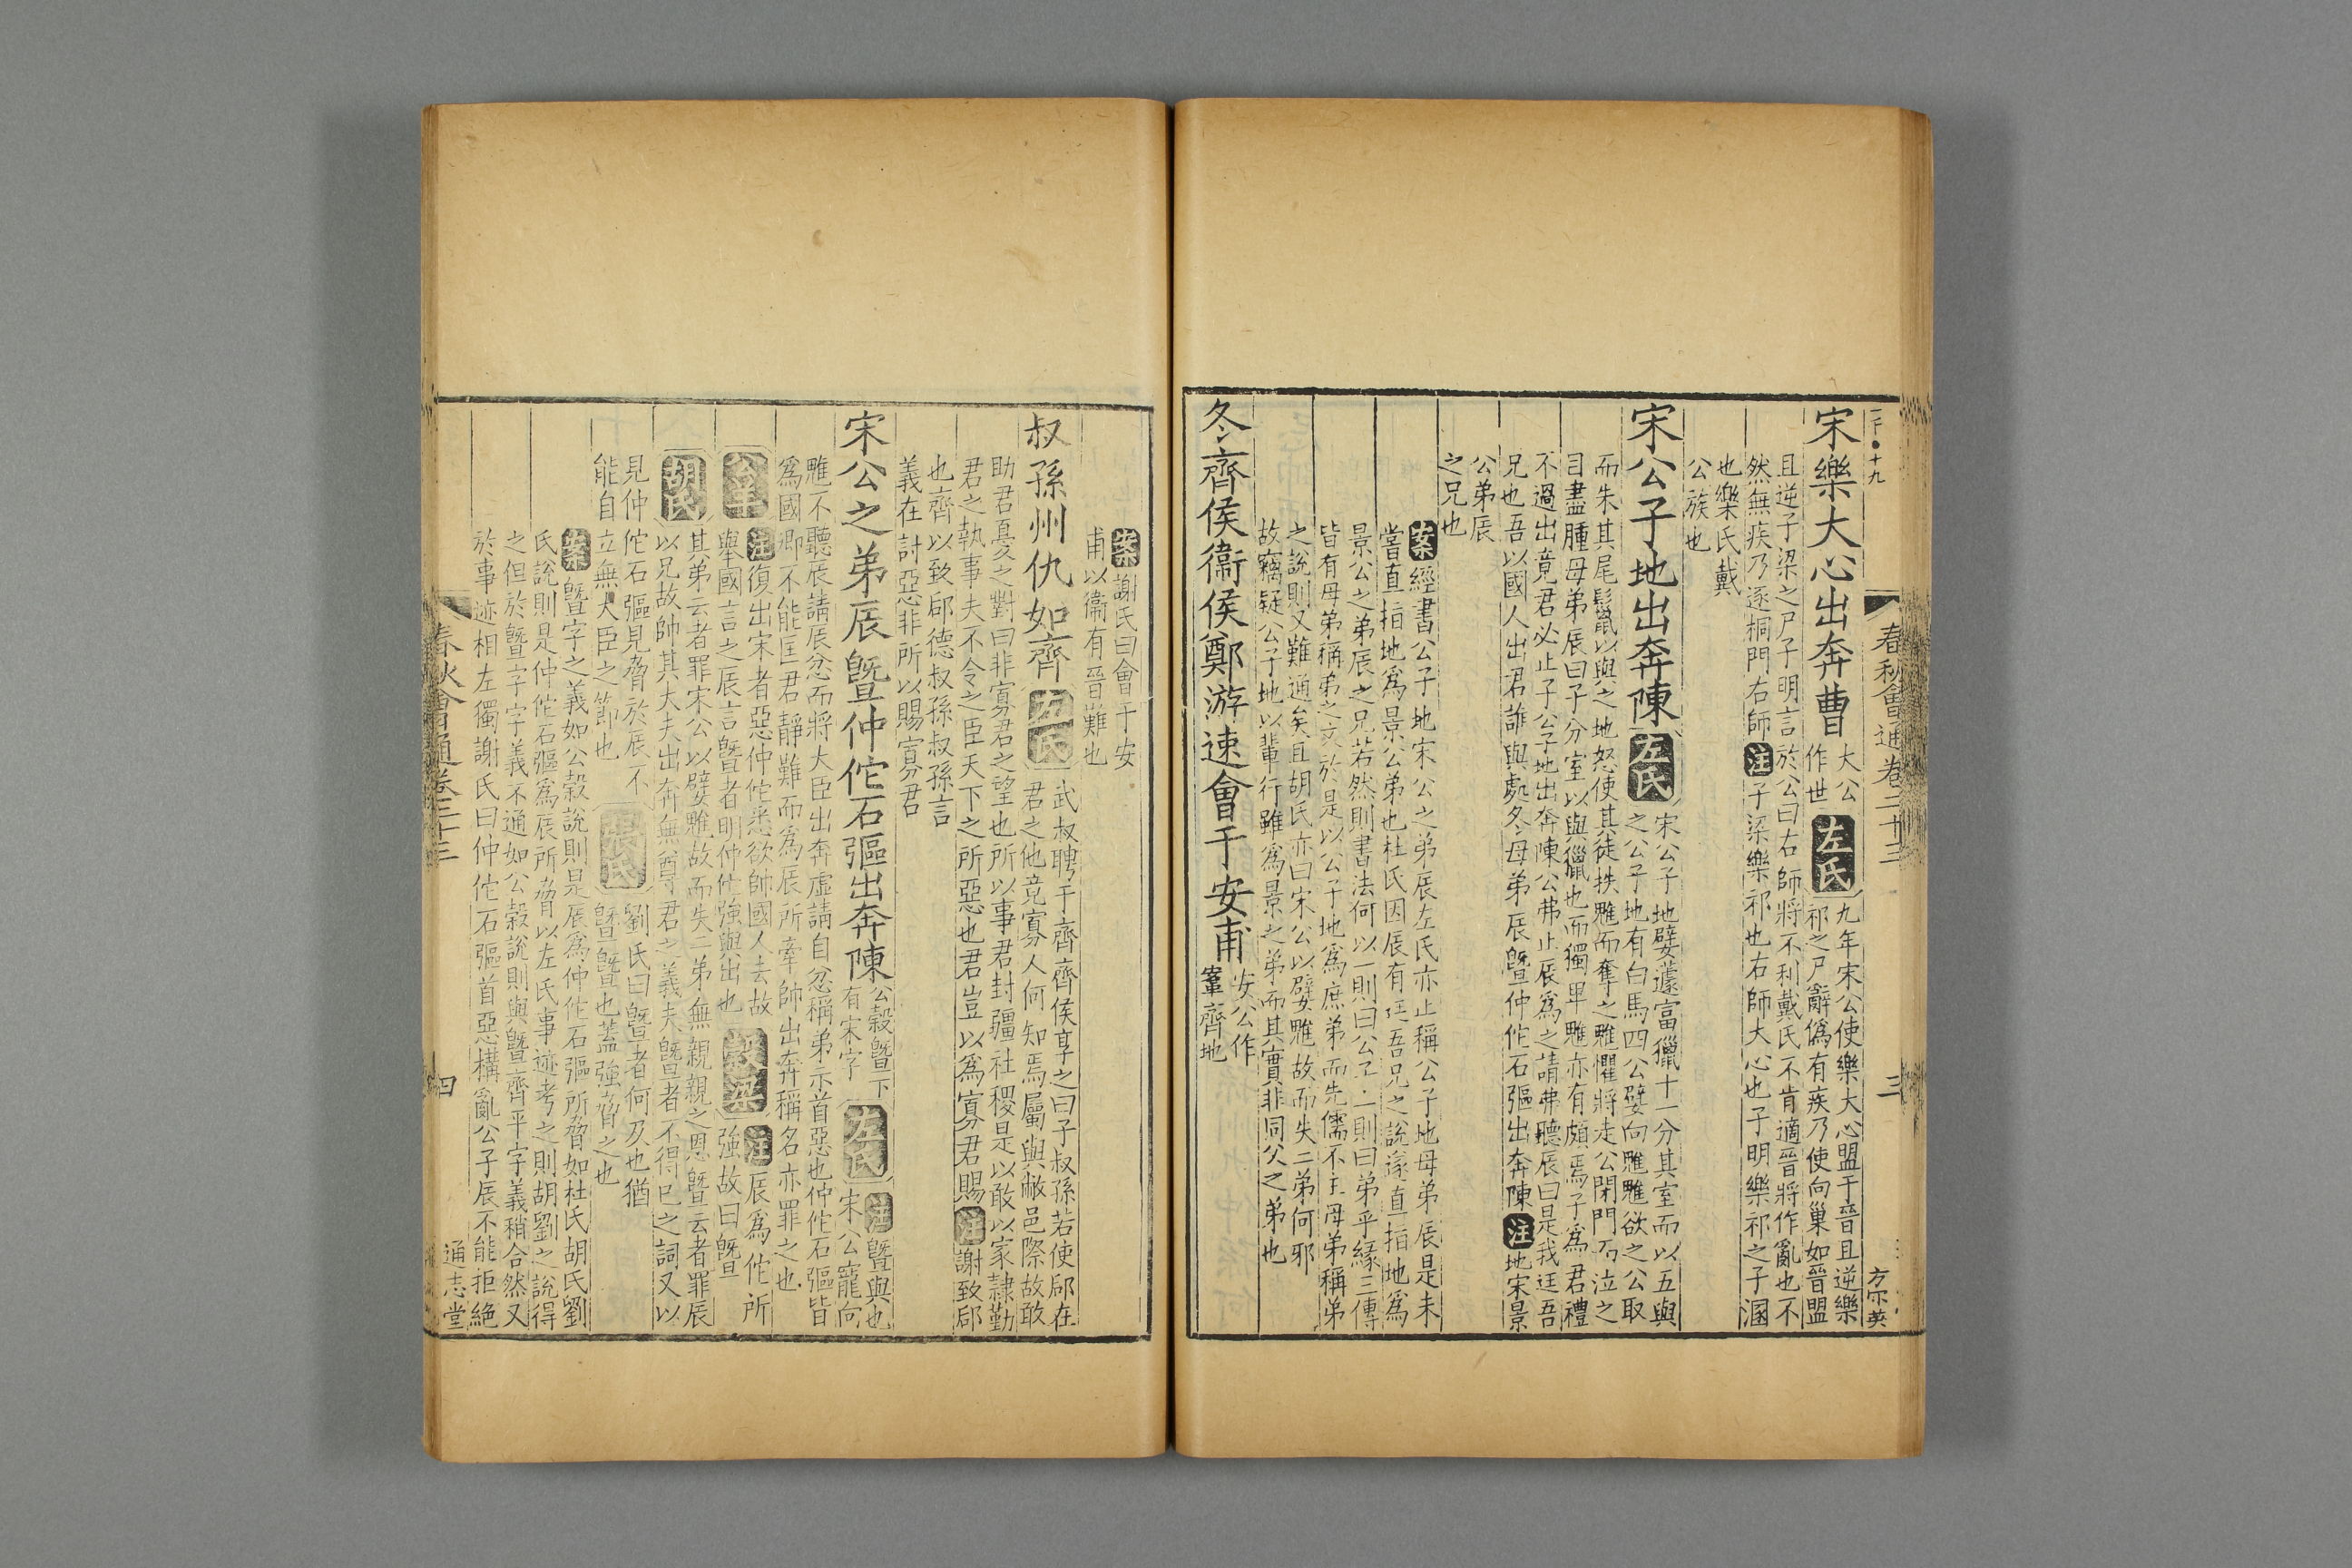 一下●十九
春秋會通卷二十三
三
方宗英
宋樂大心出奔曹
大公
作世
左氏
九年宋公使樂大心盟于晉且逆樂
祁之尸辭僞有疾乃使向巢如晉盟
且逆子梁之尸子明言於公曰右師將不利戴氏不肯適晉將作亂也不
然無疾乃逐桐門右師注子梁樂祁也右師大心也子明樂祁之子溷
也樂氏戴
公族也
宋公子地出奔陳
左氏
宋公子地嬖蘧富獵十一分其室而以五與
之公子地有白馬四公嬖向魋魋欲之公取
而朱其尾鬛以與之地怒使其徒抶魋而奪之魋懼將走公閉門而泣之
目盡腫母弟辰曰子分室以與獵也而獨畀魋亦有頗焉子爲君禮
不過出竟君必止子公子地出奔陳公弗止辰爲之請弗聽辰曰是我迋吾
兄也吾以國人出君誰與處冬母弟辰曁仲佗石彄出奔陳注地宋景
公弟辰
之兄也
案經書公子地宋公之弟辰左氏亦止稱公子地母弟辰是未
嘗直指地爲景公弟也杜氏因辰有迋吾兄之說遂直指地爲
景公之弟辰之兄若然則書法何以一則曰公子一則曰弟乎緣三傳
皆有母弟稱弟之文於是以公子地爲庶弟而先儒不主母弟稱弟
之說則又難通矣且胡氏亦曰宋公以嬖魋故而失二弟何邪
故竊疑公子地以輩行雖爲景之弟而其實非同父之弟也
冬齊侯衞侯鄭游速會于安甫
安公作
鞌齊地
案謝氏曰會于安
甫以衞有晉難也
叔孫州仇如齊
左氏
武叔聘于齊齊侯享之曰子叔孫若使郈在
君之他竟寡人何知焉屬與敝邑際故敢
助君憂之對曰非寡君之望也所以事君封疆社稷是以敢以家隷勤
君之執事夫不令之臣天下之所惡也君豈以爲寡君賜注謝致郈
也齊以致郈德叔孫叔孫言
義在討惡非所以賜寡君
宋公之弟辰曁仲佗石彄出奔陳
公穀曁下
有宋字
左氏
注曁與也
宋公寵向
魋不聽辰請辰忿而將大臣出奔虛請自忿稱弟示首惡也仲佗石彄皆
爲國卿不能匡君靜難而爲辰所牽帥出奔稱名亦罪之也
公羊
注復出宋者惡仲佗悉欲帥國人去故
舉國言之辰言曁者明仲佗強與出也
穀梁
注辰爲佗所
強故曰曁
胡氏
其弟云者罪宋公以嬖魋故而失二弟無親親之恩曁云者罪辰
以兄故帥其大夫出奔無尊君之義夫曁者不得已之詞又以
見仲佗石彄見脅於辰不
能自立無大臣之節也
張氏
劉氏曰曁者何及也猶
曁曁也蓋強脅之也
案曁字之義如公穀說則是辰爲仲佗石彄所脅如杜氏胡氏劉
氏說則是仲佗石彄爲辰所脅以左氏事迹考之則胡劉之說得
之但於曁字字義不通如公穀說則與曁齊平字義稍合然又
於事迹相左獨謝氏曰仲佗石彄首惡構亂公子辰不能拒絕
春秋會通卷二十三
四
通志堂